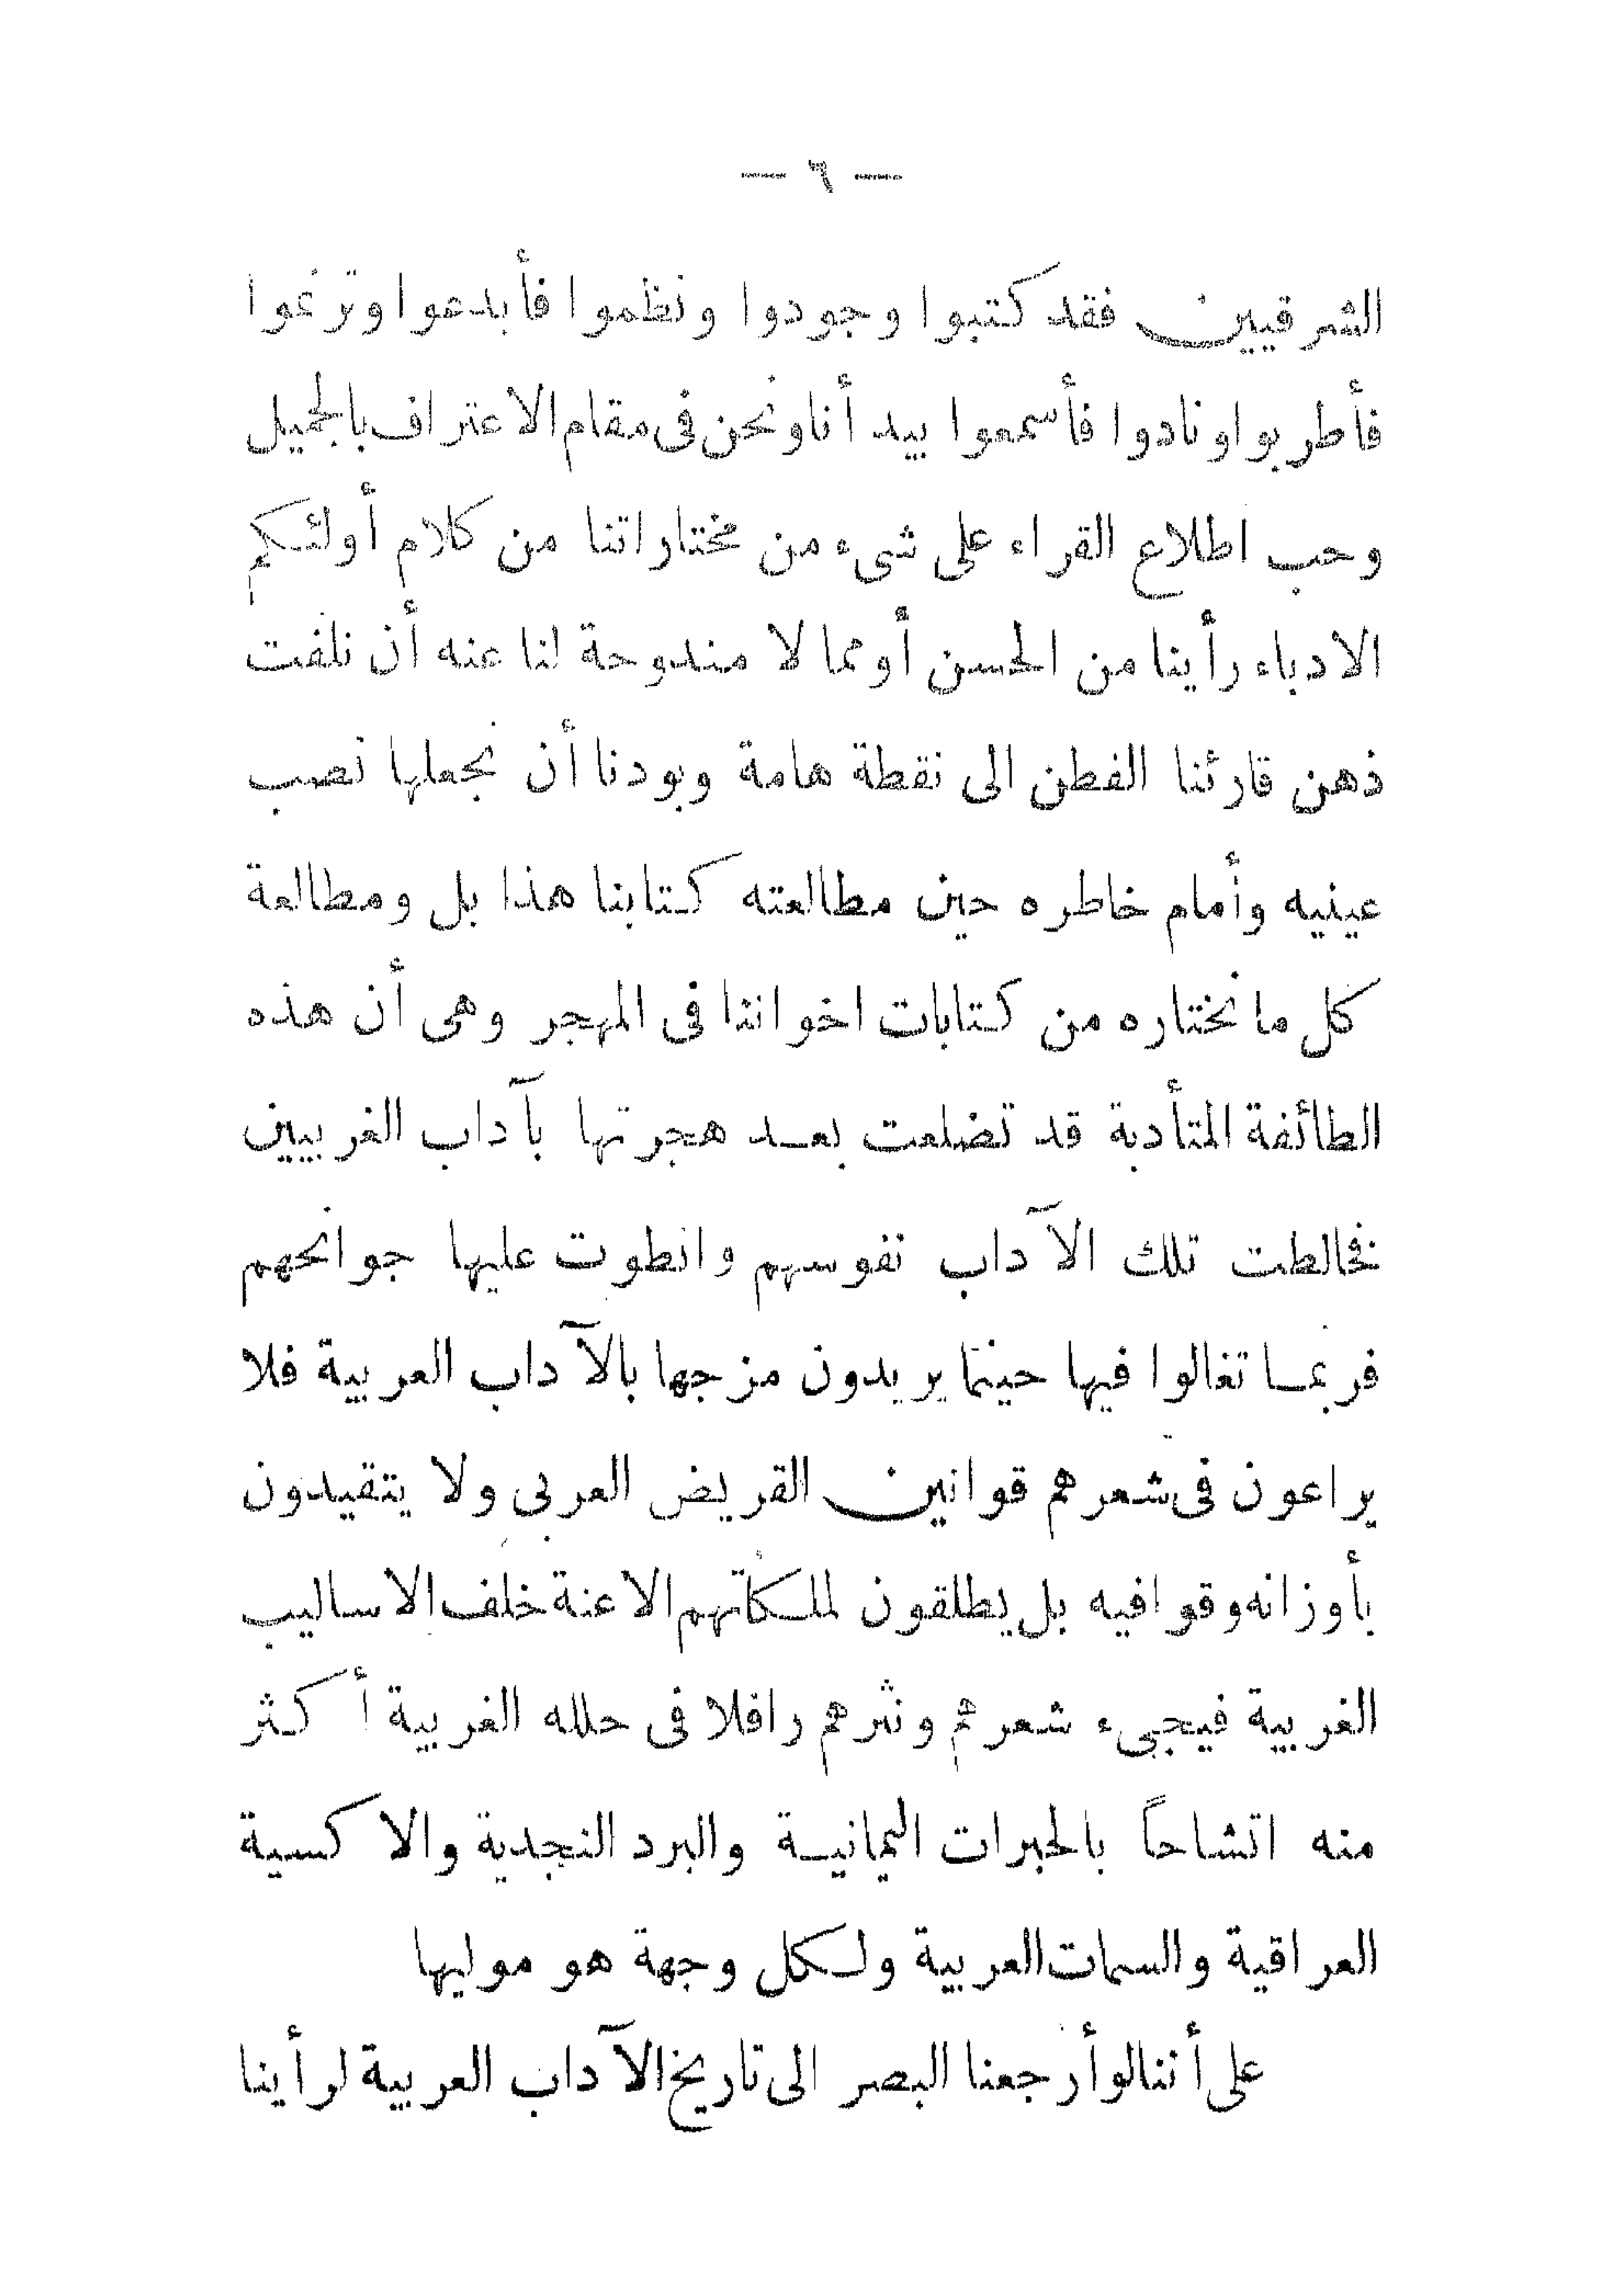 — ٦ —
الشرقيين فقد كتبوا وجودوا ونظموا فأبدعوا وترنموا
فأطربوا ونادوا فأسمعوا بيد أنا ونحن فى مقام الاعتراف بالجميل
وحب اطلاع القراء على شىء من مختاراتنا من كلام أولئكم
الادباء رأينا من الحسن أو مما لا مندوحة لنا عنه أن نلفت
ذهن قارئنا الفطن الى نقطة هامة وبودنا أن نجعلها نصب
عينيه وأمام خاطره حين مطالعته كتابنا هذا بل ومطالعة
كل ما نختاره من كتابات اخواننا فى المهجر وهى أن هذه
الطائفة المتأدبة قد تضلعت بعد هجرتها بآداب الغربيين
فخالطت تلك الآداب نفوسهم وانطوت عليها جوانحهم
فربما تغالوا فيها حينما يريدون مزجها بالآداب العربية فلا
يراعون فى شعرهم قوانين القريض العربى ولا يتقيدون
بأوزانه وقوافيه بل يطلقون لملكاتهم الاعنة خلف الاساليب
الغربية فيجىء شعرهم ونثرهم رافلا فى حلله الغربية أكثر
منه اتشاحاً بالحبرات اليمانية والبرد النجدية والاكسية
العراقية والسمات العربية ولكل وجهة هو موليها
على أننا لو أرجعنا البصر الى تاريخ الآداب العربية لرأينا